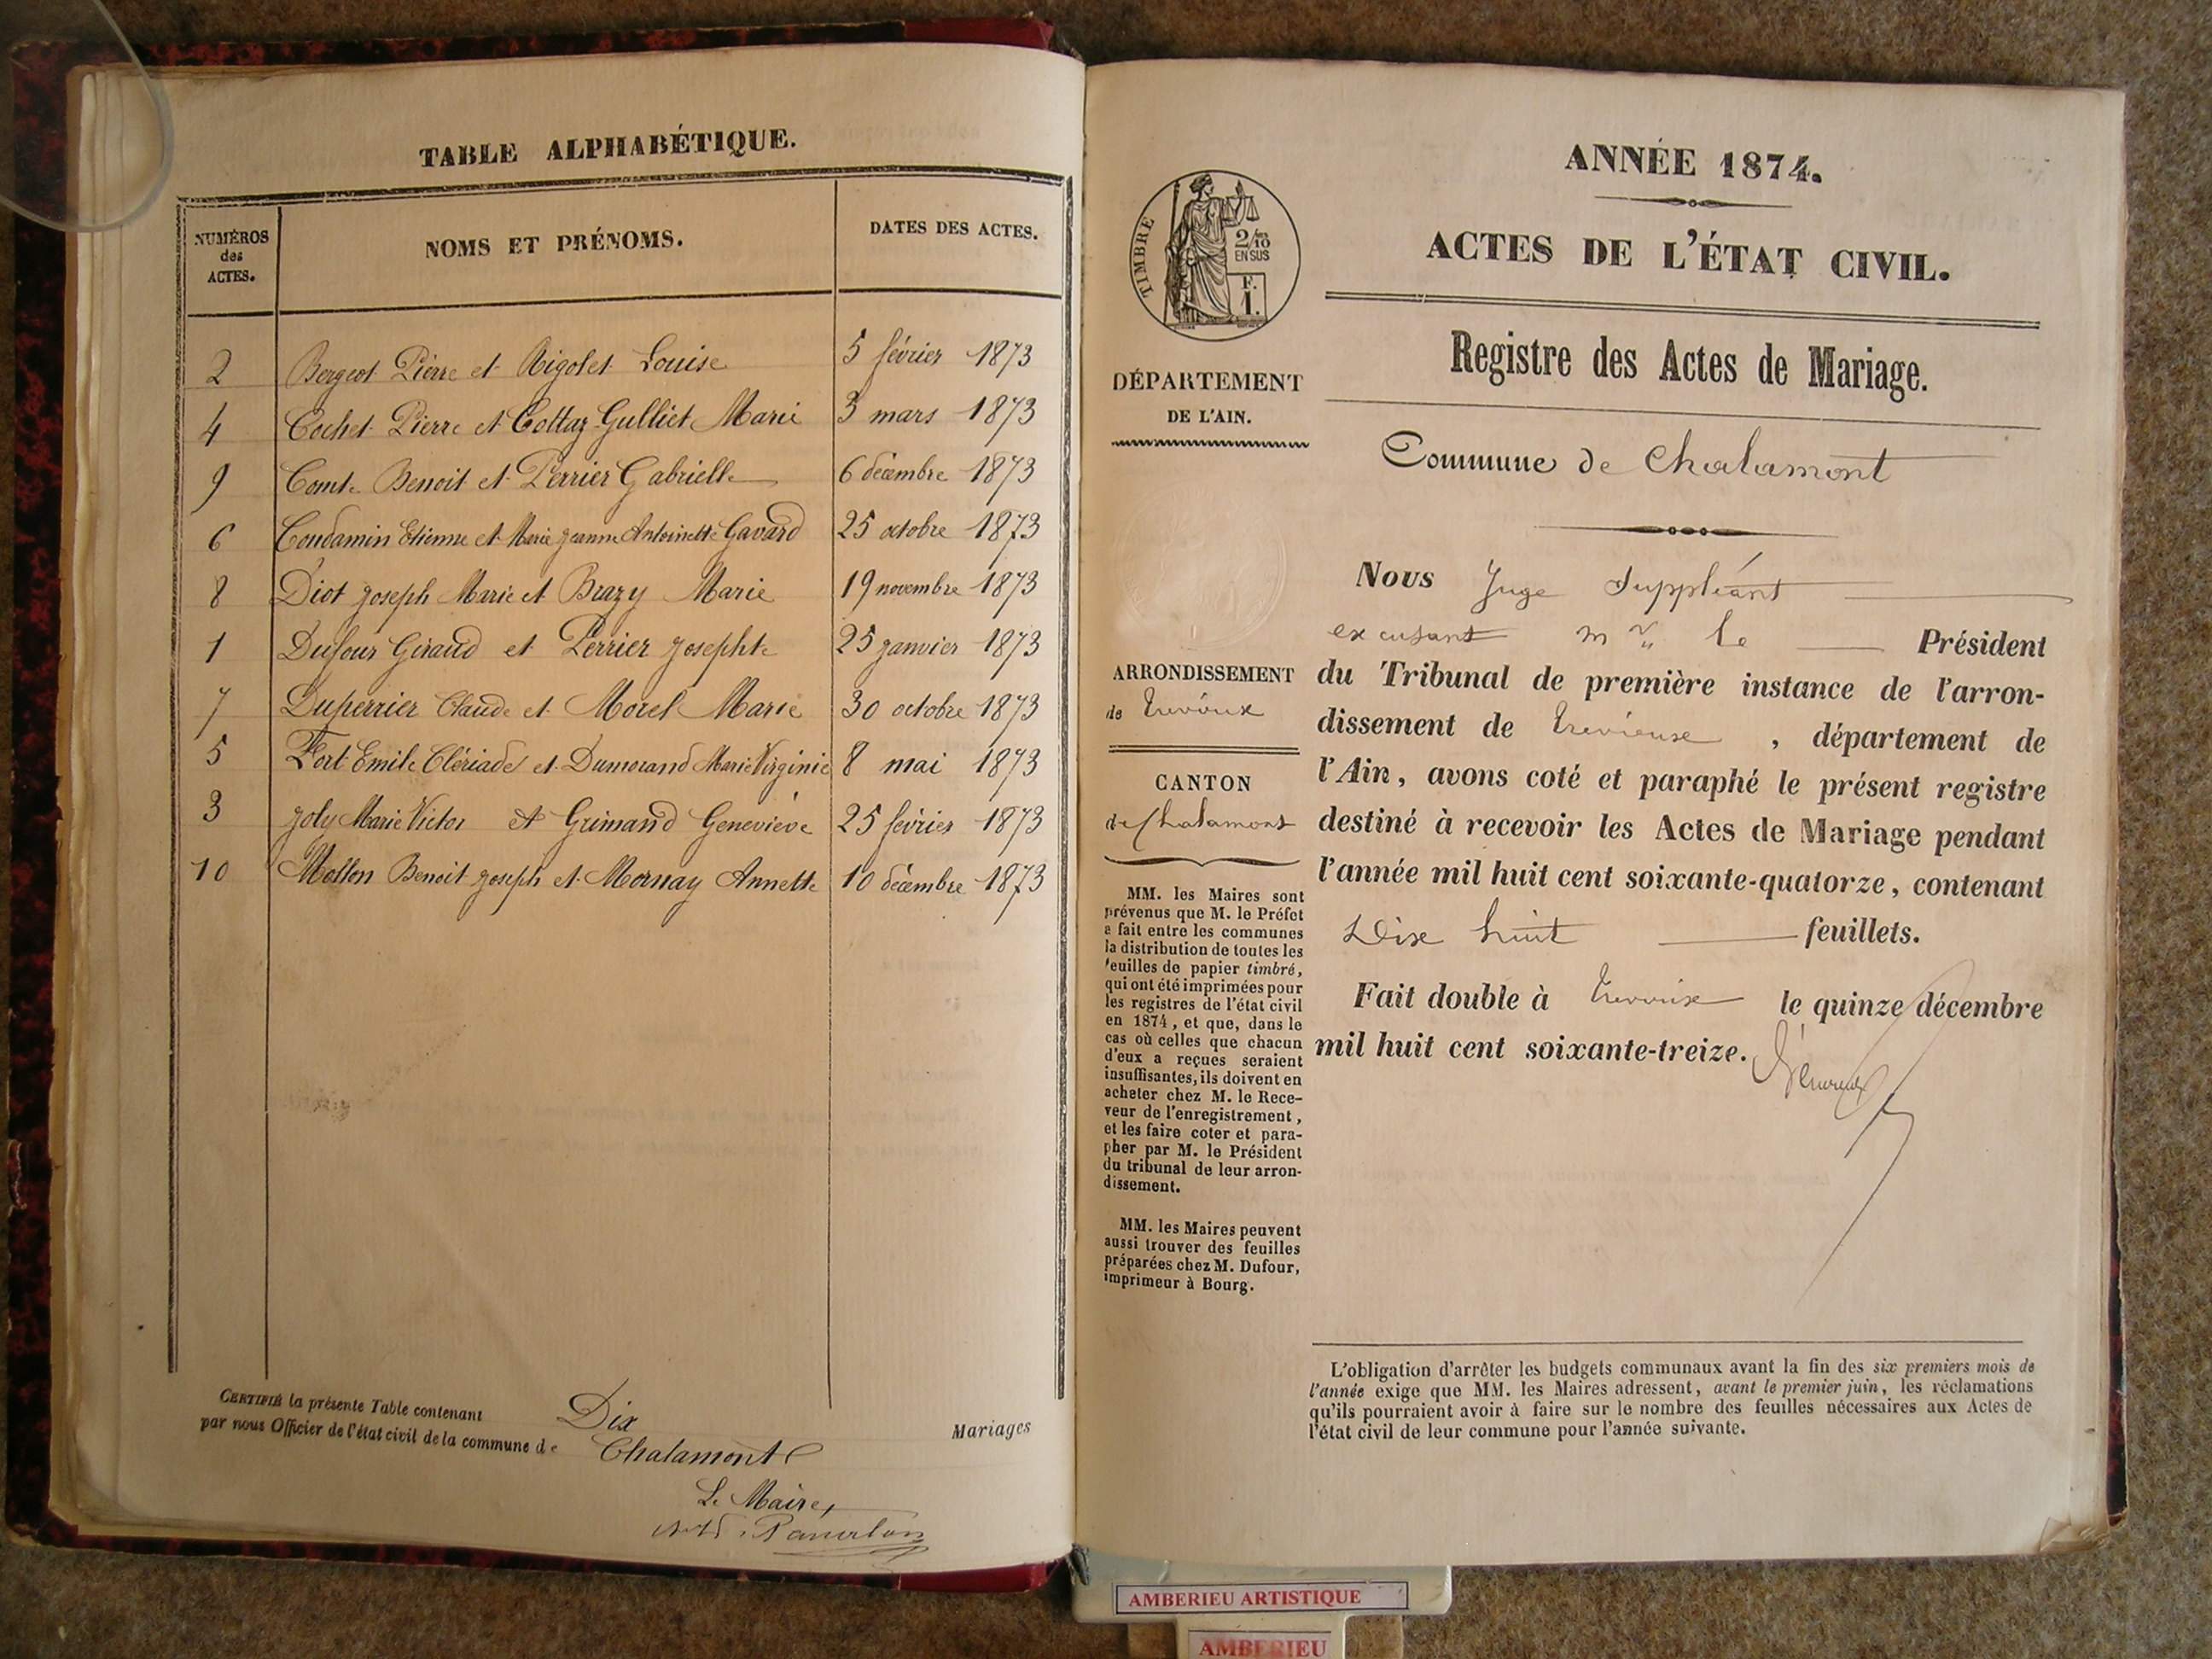 TABLE ALPHABÉTIQUE.
NUMÉROS des ACTES. NOMS ET PRÉNOMS. DATES DES ACTES.
2 Bergeot Pierre et Rigolet Louise 5 février 1873
4 Cochet Pierre et Cottaz-Gulliet Marie 3 mars 1873
9 Comte Benoit et Perrier Gabrielle 6 décembre 1873
6 Condamin Etienne et Marie Jeanne Antoinette Gavard 25 octobre 1873
8 Diot Joseph Marie et Brazy Marie 19 novembre 1873
1 Dufour Giraud et Perrier Josephte 25 janvier 1873
7 Duperrier Claude et Morel Marie 30 octobre 1873
5 Fort Emile Clériade et Dumorand Marie Virginie 8 mai 1873
3 Joly Marie Victor et Grimand Geneviève 25 février 1873
10 Mollon Benoit Joseph et Mornay Annette 10 décembre 1873
CERTIFIÉ la présente Table contenant Dix Mariages
par nous Officier de l'état civil de la commune de Chalamont
Le Maire,
TIMBRE
2/10 EN SUS
F. 1.
DÉPARTEMENT
DE L'AIN.
ARRONDISSEMENT
de Trévoux
CANTON
de Chalamont
MM. les Maires sont
prévenus que M. le Préfet
a fait entre les communes
la distribution de toutes les
feuilles de papier timbré,
qui ont été imprimées pour
les registres de l'état civil
en 1874, et que, dans le
cas où celles que chacun
d'eux a reçues seraient
insuffisantes, ils doivent en
acheter chez M. le Rece-
veur de l'enregistrement,
et les faire coter et para-
pher par M. le Président
du tribunal de leur arron-
dissement.
MM. les Maires peuvent
aussi trouver des feuilles
préparées chez M. Dufour,
imprimeur à Bourg.
ANNÉE 1874.
ACTES DE L'ÉTAT CIVIL.
Registre des Actes de Mariage.
Commune de Chalamont
Nous Juge Suppléant
excusant Mr le Président
du Tribunal de première instance de l'arron-
dissement de Trévoux, département de
l'Ain, avons coté et paraphé le présent registre
destiné à recevoir les Actes de Mariage pendant
l'année mil huit cent soixante-quatorze, contenant
Dix huit feuillets.
Fait double à Trévoux le quinze décembre
mil huit cent soixante-treize.
L'obligation d'arrêter les budgets communaux avant la fin des six premiers mois de
l'année exige que MM. les Maires adressent, avant le premier juin, les réclamations
qu'ils pourraient avoir à faire sur le nombre des feuilles nécessaires aux Actes de
l'état civil de leur commune pour l'année suivante.
AMBERIEU ARTISTIQUE
AMBERIEU